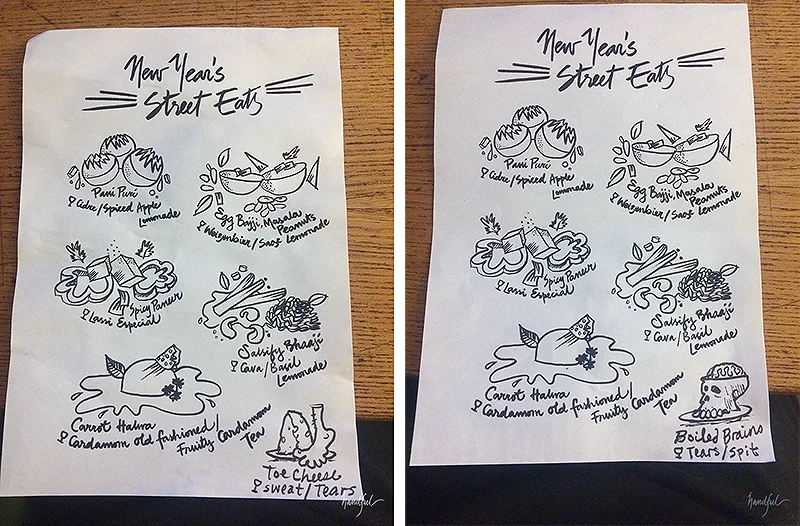 New Year's
Street Eats
Pani Puri
Cidre/Spiced Apple
Lemonade
Egg Bajji, Masala
Peanuts
Weizenbier/Saof Lemonade
Spicy Paneer
Lassi Especial
Salsify Bhaaji
Cava/Basil
Lemonade
Carrot Halwa
Cardamom old fashioned/
Fruity Cardamom
Tea
Toe Cheese
sweat/Tears
handful
New Year's
Street Eats
Pani Puri
Cidre/Spiced Apple
Lemonade
Egg Bajji, Masala
Peanuts
Weizenbier/Saof Lemonade
Spicy Paneer
Lassi Especial
Salsify Bhaaji
Cava/Basil
Lemonade
Carrot Halwa
Cardamom old fashioned/
Fruity Cardamom
Tea
Boiled Brains
Tears/Spit
handful